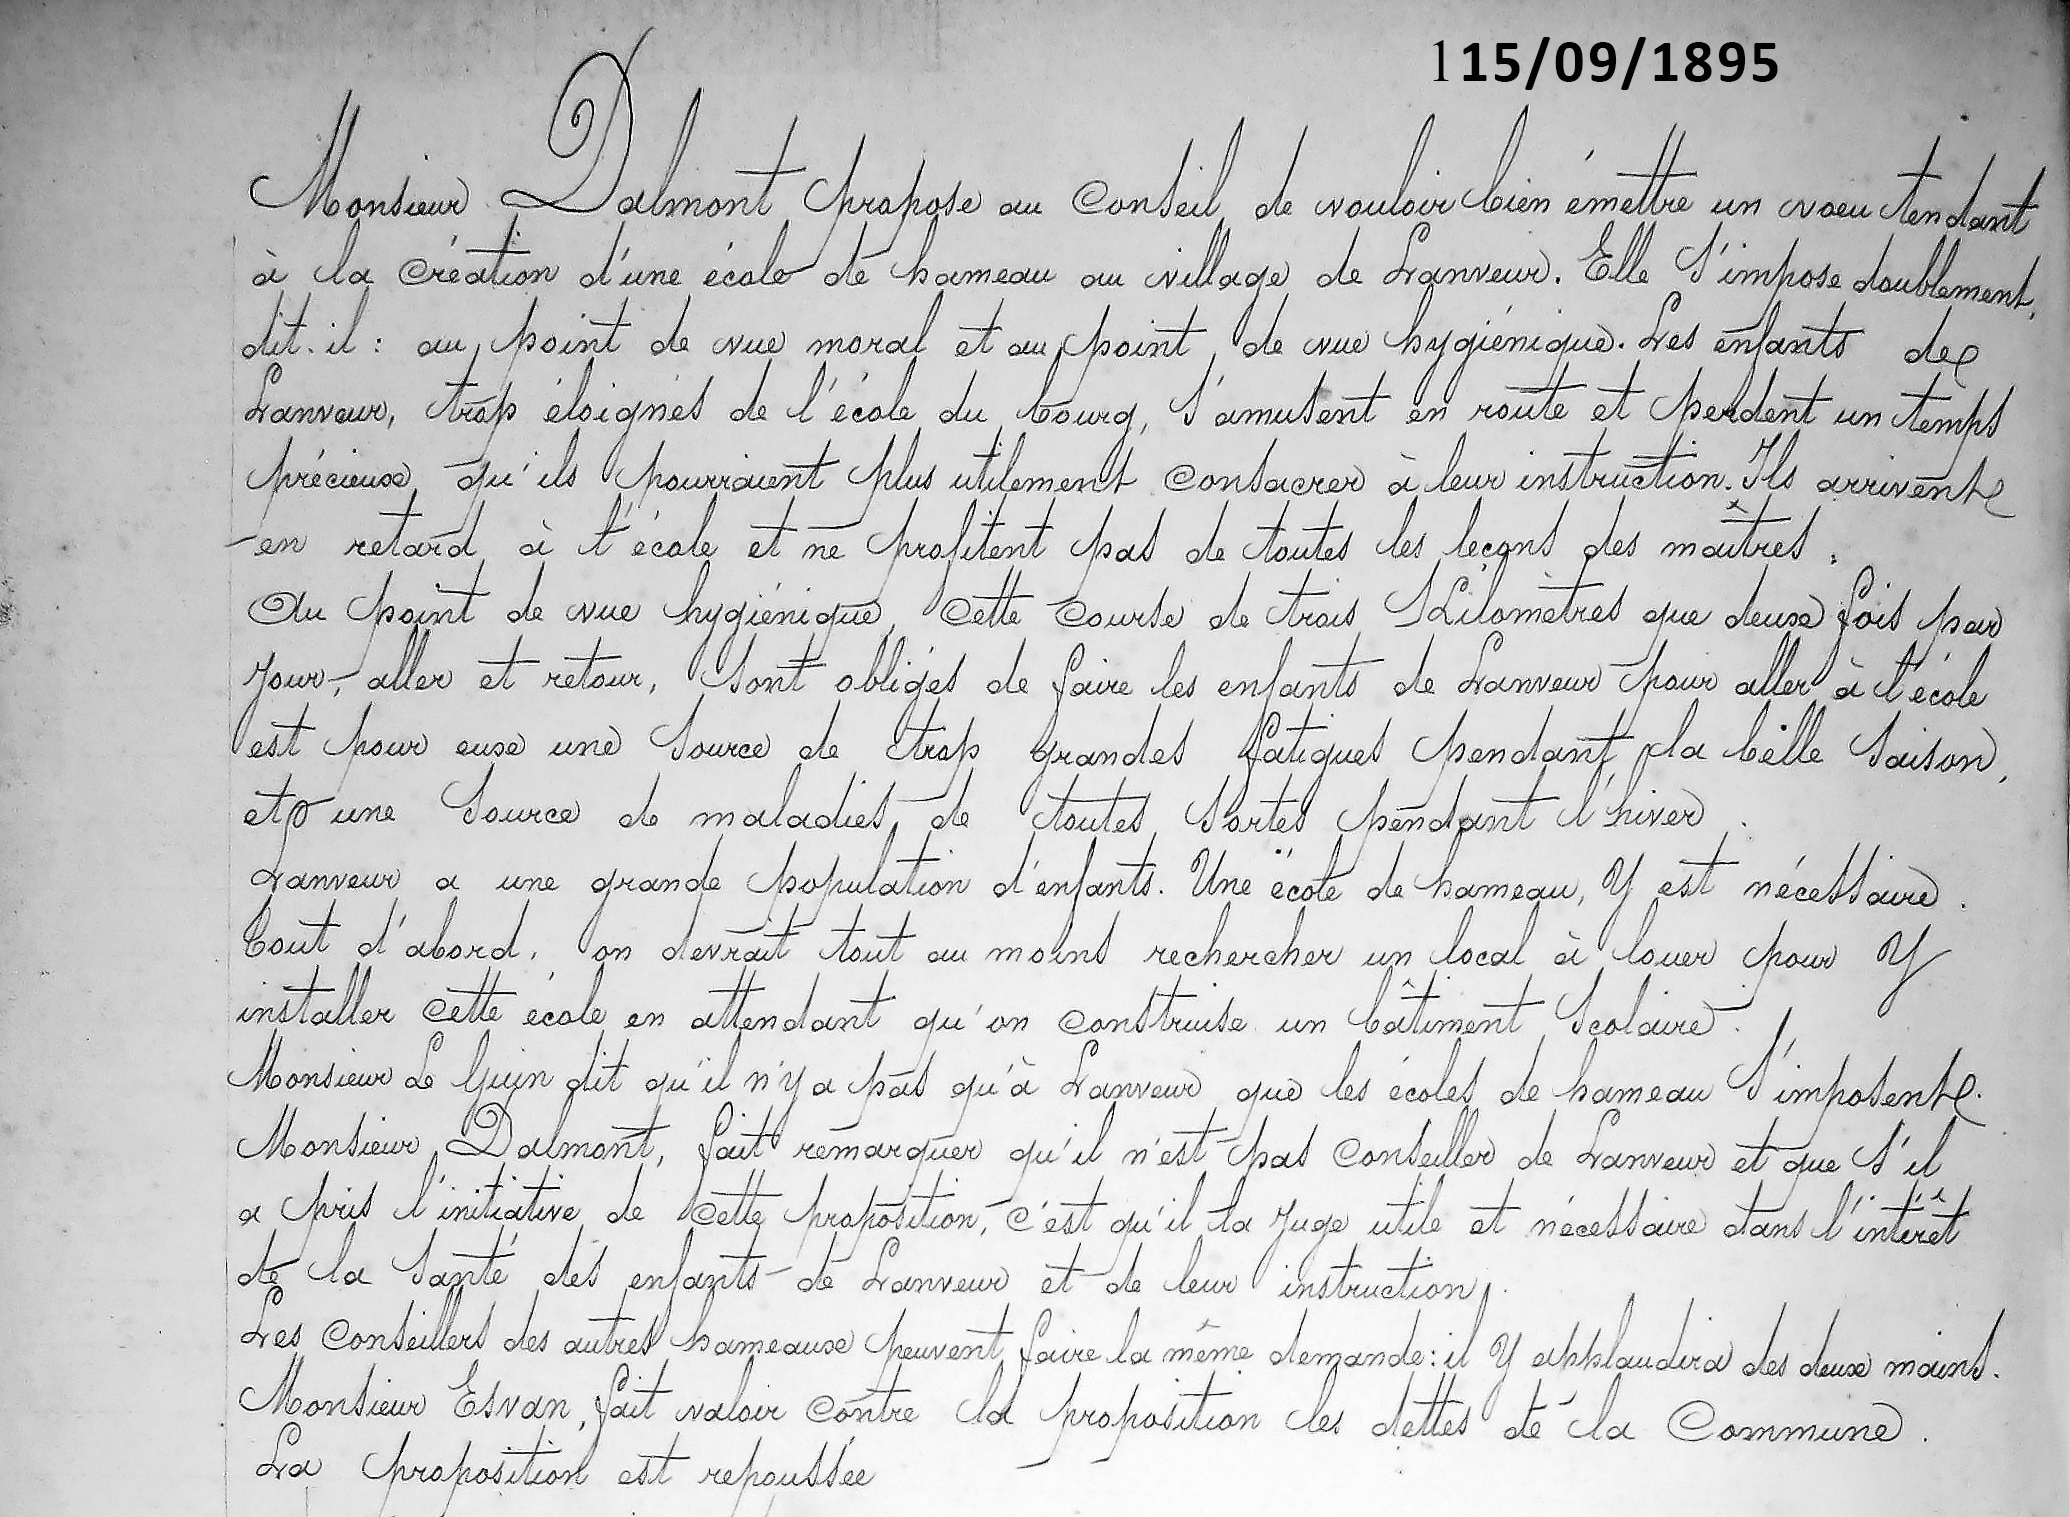 115/09/1895
Monsieur Dalmont propose au Conseil de vouloir bien émettre un voeu tendant
à la création d'une école de hameau au village de Lanveur. Elle s'impose doublement,
dit-il : au point de vue moral et au point de vue hygiénique. Les enfants de
Lanveur, trop éloignés de l'école du bourg, s'amusent en route et perdent un temps
précieux qu'ils pourraient plus utilement consacrer à leur instruction. Ils arrivent
en retard à l'école et ne profitent pas de toutes les leçons des maîtres.
Au point de vue hygiénique, cette course de trois Kilomètres que deux fois par
jour, aller et retour, sont obligés de faire les enfants de Lanveur pour aller à l'école
est pour eux une source de trop grandes fatigues pendant la belle saison,
et une source de maladies de toutes sortes pendant l'hiver.
Lanveur a une grande population d'enfants. Une école de hameau, y est nécessaire.
Tout d'abord, on devrait tout au moins rechercher un local à louer pour y
installer cette école en attendant qu'on construise un bâtiment scolaire.
Monsieur Le Guin dit qu'il n'y a pas qu'à Lanveur que les écoles de hameau s'imposent.
Monsieur Dalmont, fait remarquer qu'il n'est pas Conseiller de Lanveur et que s'il
a pris l'initiative de cette proposition, c'est qu'il la juge utile et nécessaire dans l'intérêt
de la santé des enfants de Lanveur et de leur instruction.
Les Conseillers des autres hameaux peuvent faire la même demande : il y applaudira des deux mains.
Monsieur Esvan, fait valoir contre la proposition les dettes de la Commune.
La proposition est repoussée